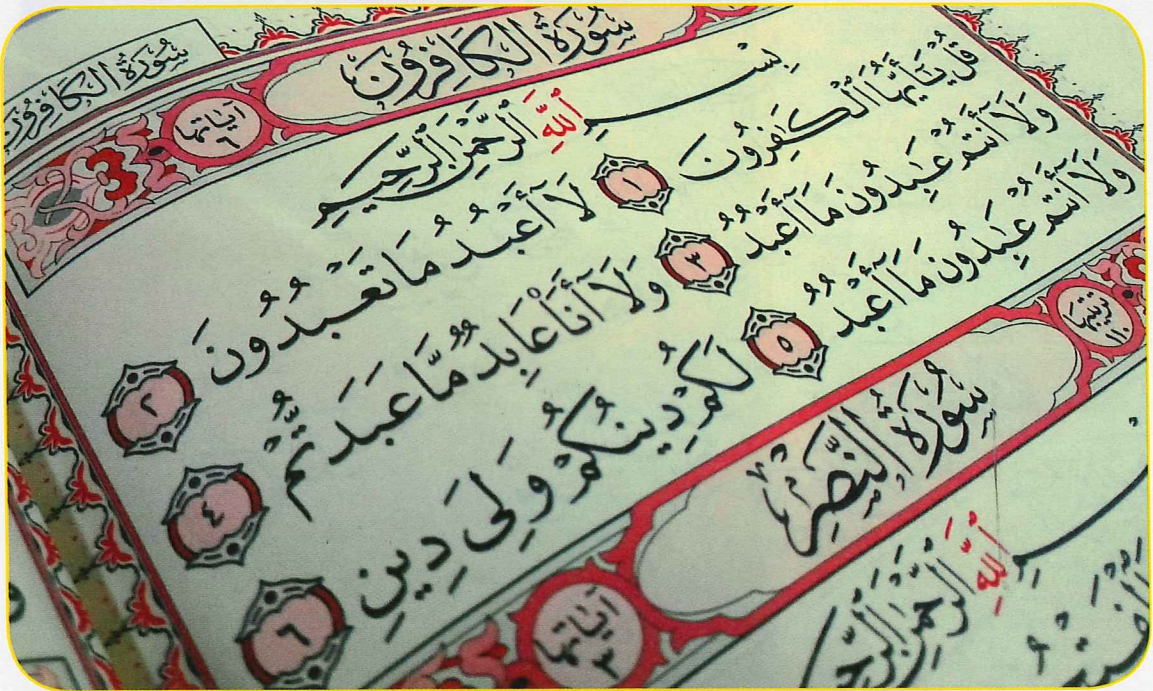 سُورَةُ الكَافِرُونَ
سُورَةُ الكَافِرُونَ
آيَاتُهَا ٦
بِسْمِ ٱللَّهِ ٱلرَّحْمَٰنِ ٱلرَّحِيمِ
قُلْ يَٰٓأَيُّهَا ٱلْكَٰفِرُونَ ١ لَآ أَعْبُدُ مَا تَعْبُدُونَ ٢
وَلَآ أَنتُمْ عَٰبِدُونَ مَآ أَعْبُدُ ٣ وَلَآ أَنَا۠ عَابِدٌ مَّا عَبَدتُّمْ ٤
وَلَآ أَنتُمْ عَٰبِدُونَ مَآ أَعْبُدُ ٥ لَكُمْ دِينُكُمْ وَلِىَ دِينِ ٦
تَرْتِيبُهَا ١١٠
سُورَةُ النَّصْرِ
آيَاتُهَا ٣
ٱللَّهِ ٱلرَّحْمَٰنِ